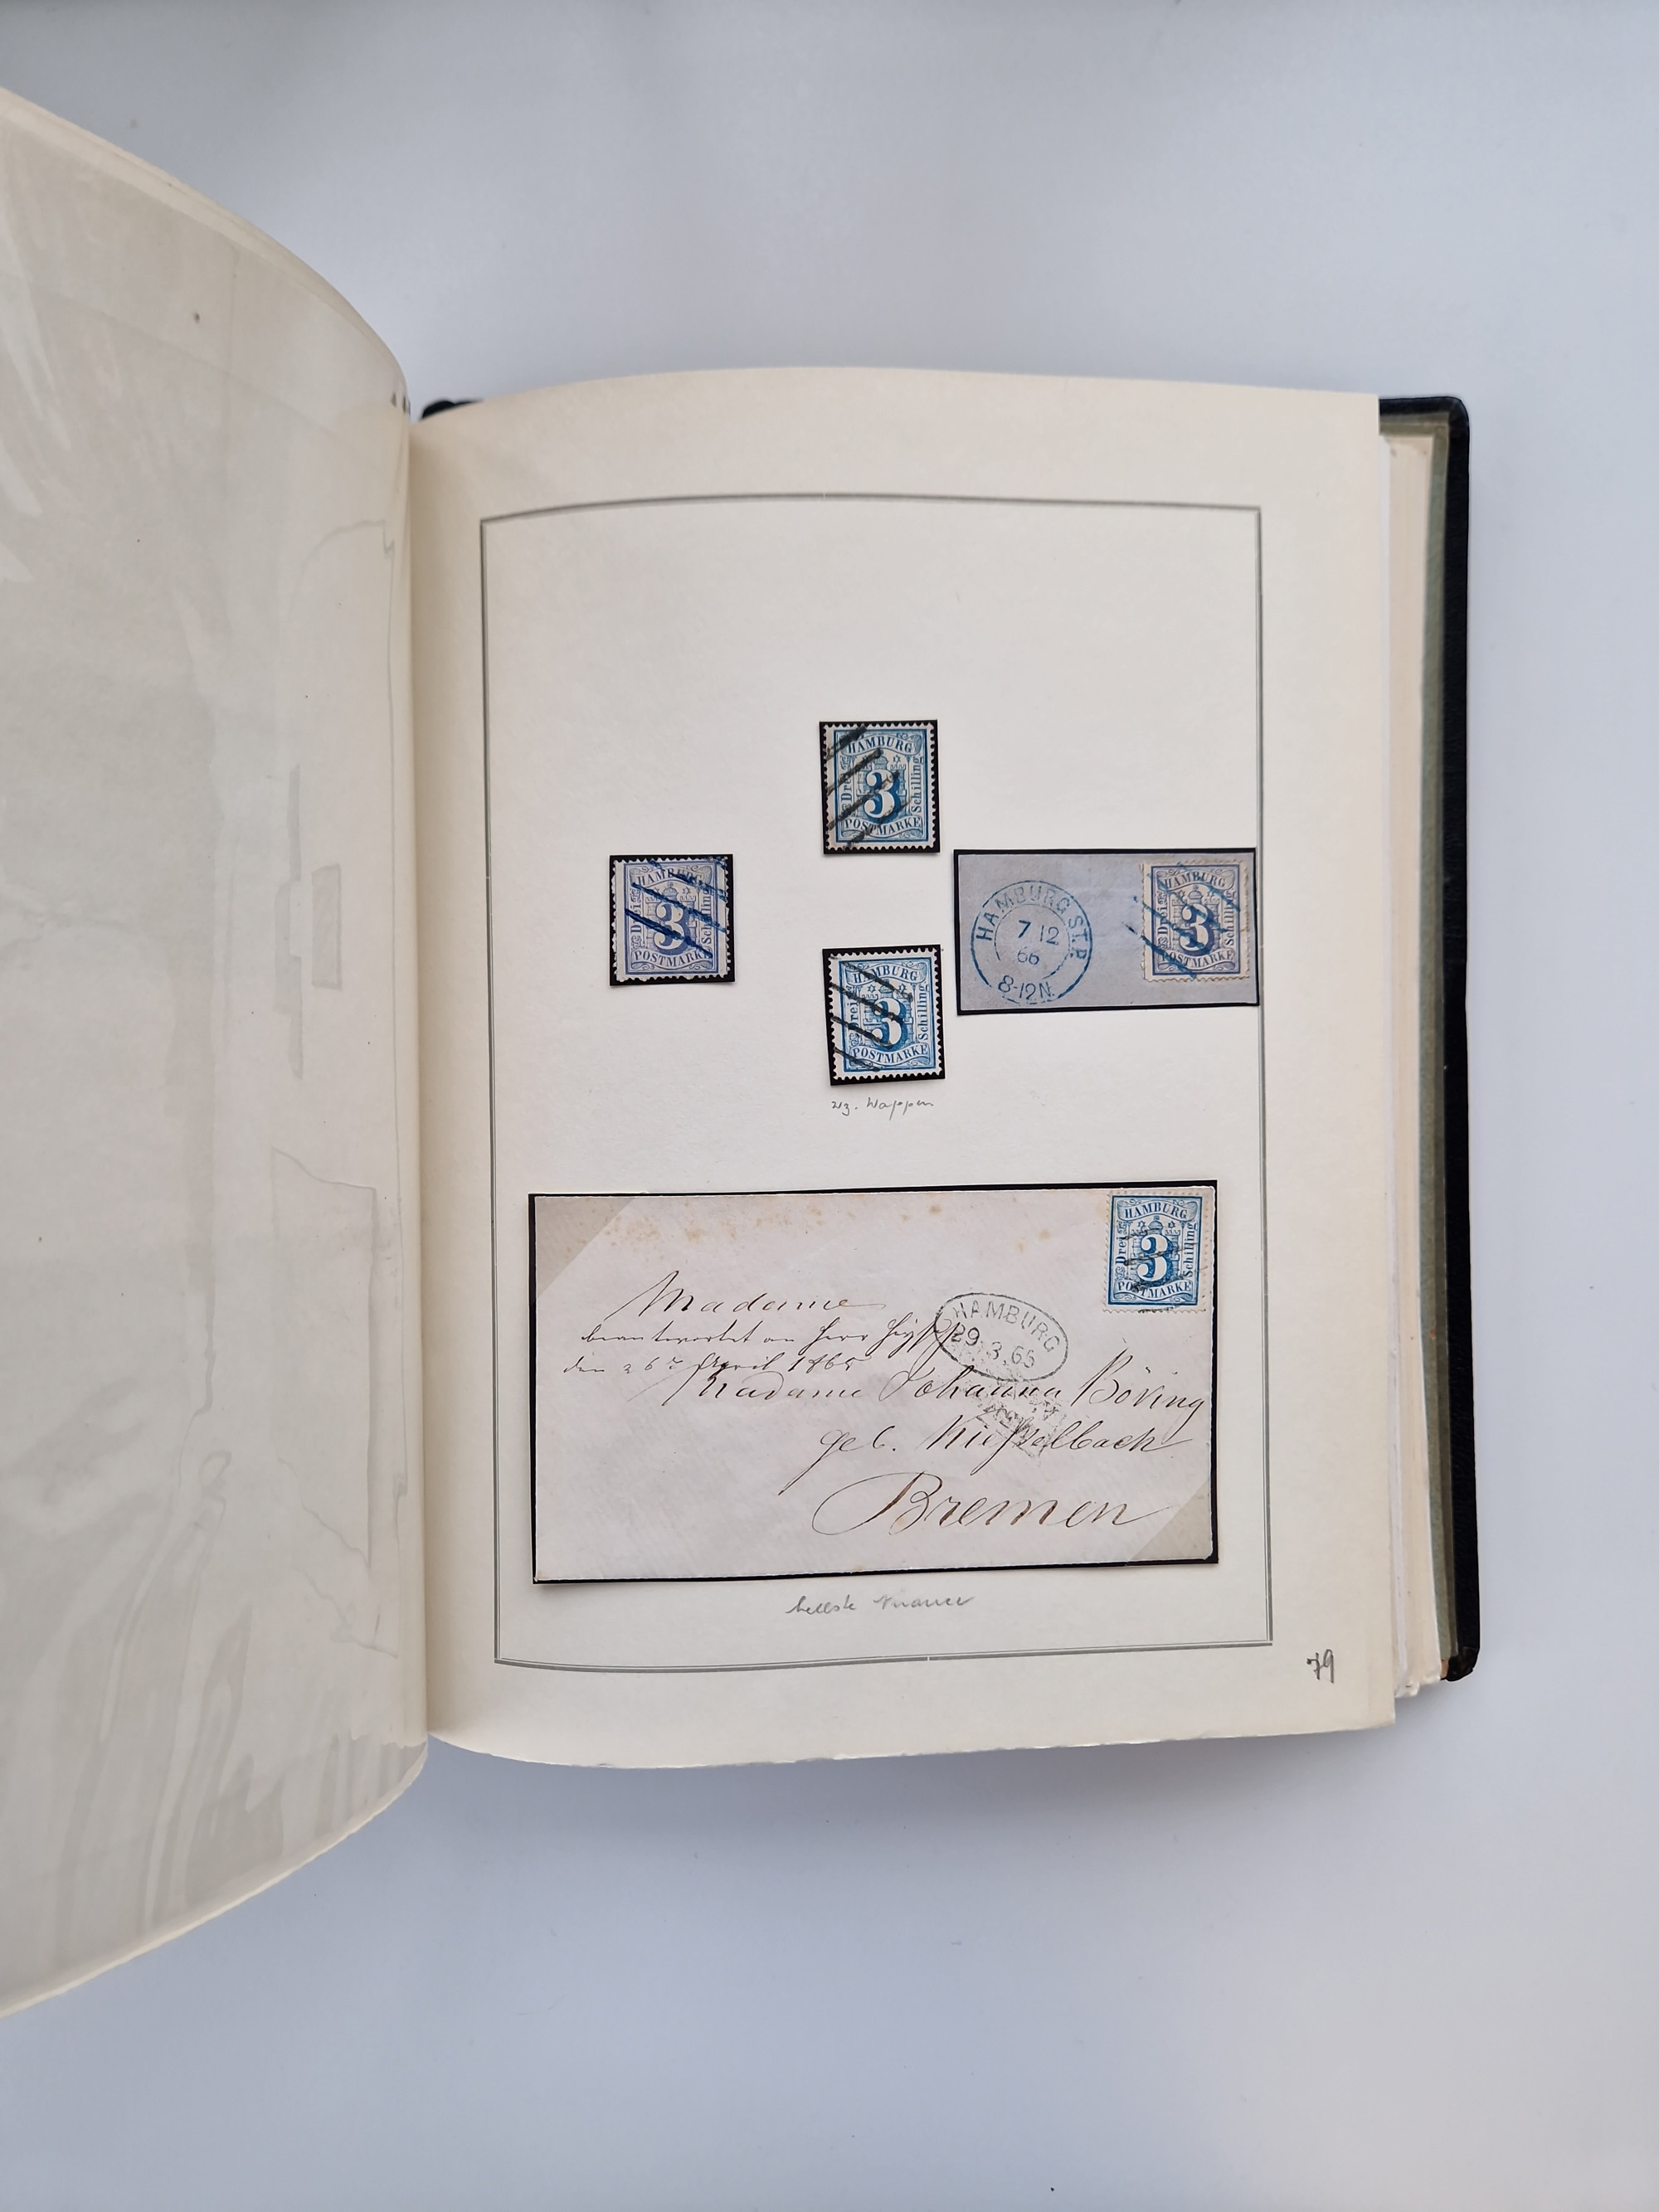 HAMBURG
Drei
3
Schilling
POSTMARKE
HAMBURG
Drei
3
Schilling
POSTMARKE
HAMBURG ST.P.
7 12
66
8-12N.
HAMBURG
Drei
3
Schilling
POSTMARKE
HAMBURG
Drei
3
Schilling
POSTMARKE
Wz. Wappen
HAMBURG
Drei
3
Schilling
POSTMARKE
HAMBURG
29.3.65
Madame
beantwortet an Herr
den 26 April 1865
Madame Johanna Böving
geb. Kießelbach
Bremen
hellste Nuance
79